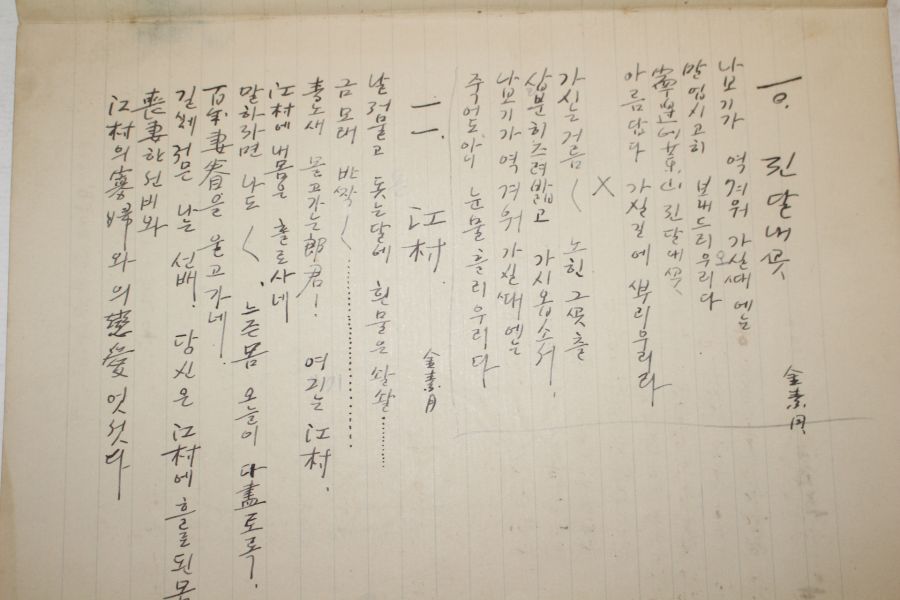 一〇. 진달내꽃
金素月
나보기가 역겨워 가실때에는
말업시고히 보내드리우리다
寧邊에藥山 진달내꽃
아름담다 가실길에 뿌리우리라
×
가시는거름〱 노힌 그꽃츨
삽분히즈려밟고 가시옵소서.
나보기가 역겨워 가실때에는
죽어도, 아니 눈물흘리우리다
一一. 江村.
金素月
날저물고 돗는달에 흰물은 솰솰………
금모래 반짝〱…………
靑노새 몰고가는郎君! 여긔는 江村.
江村에내몸은 홀로사네
말하라면 나도〱 느즌봄 오늘이 다盡토록.
百年妻眷을 울고가네.
길쎄저문 나는 선배! 당신은 江村에홀로된몸
喪妻한선비와
江村의寡婦와의戀愛엿섯다